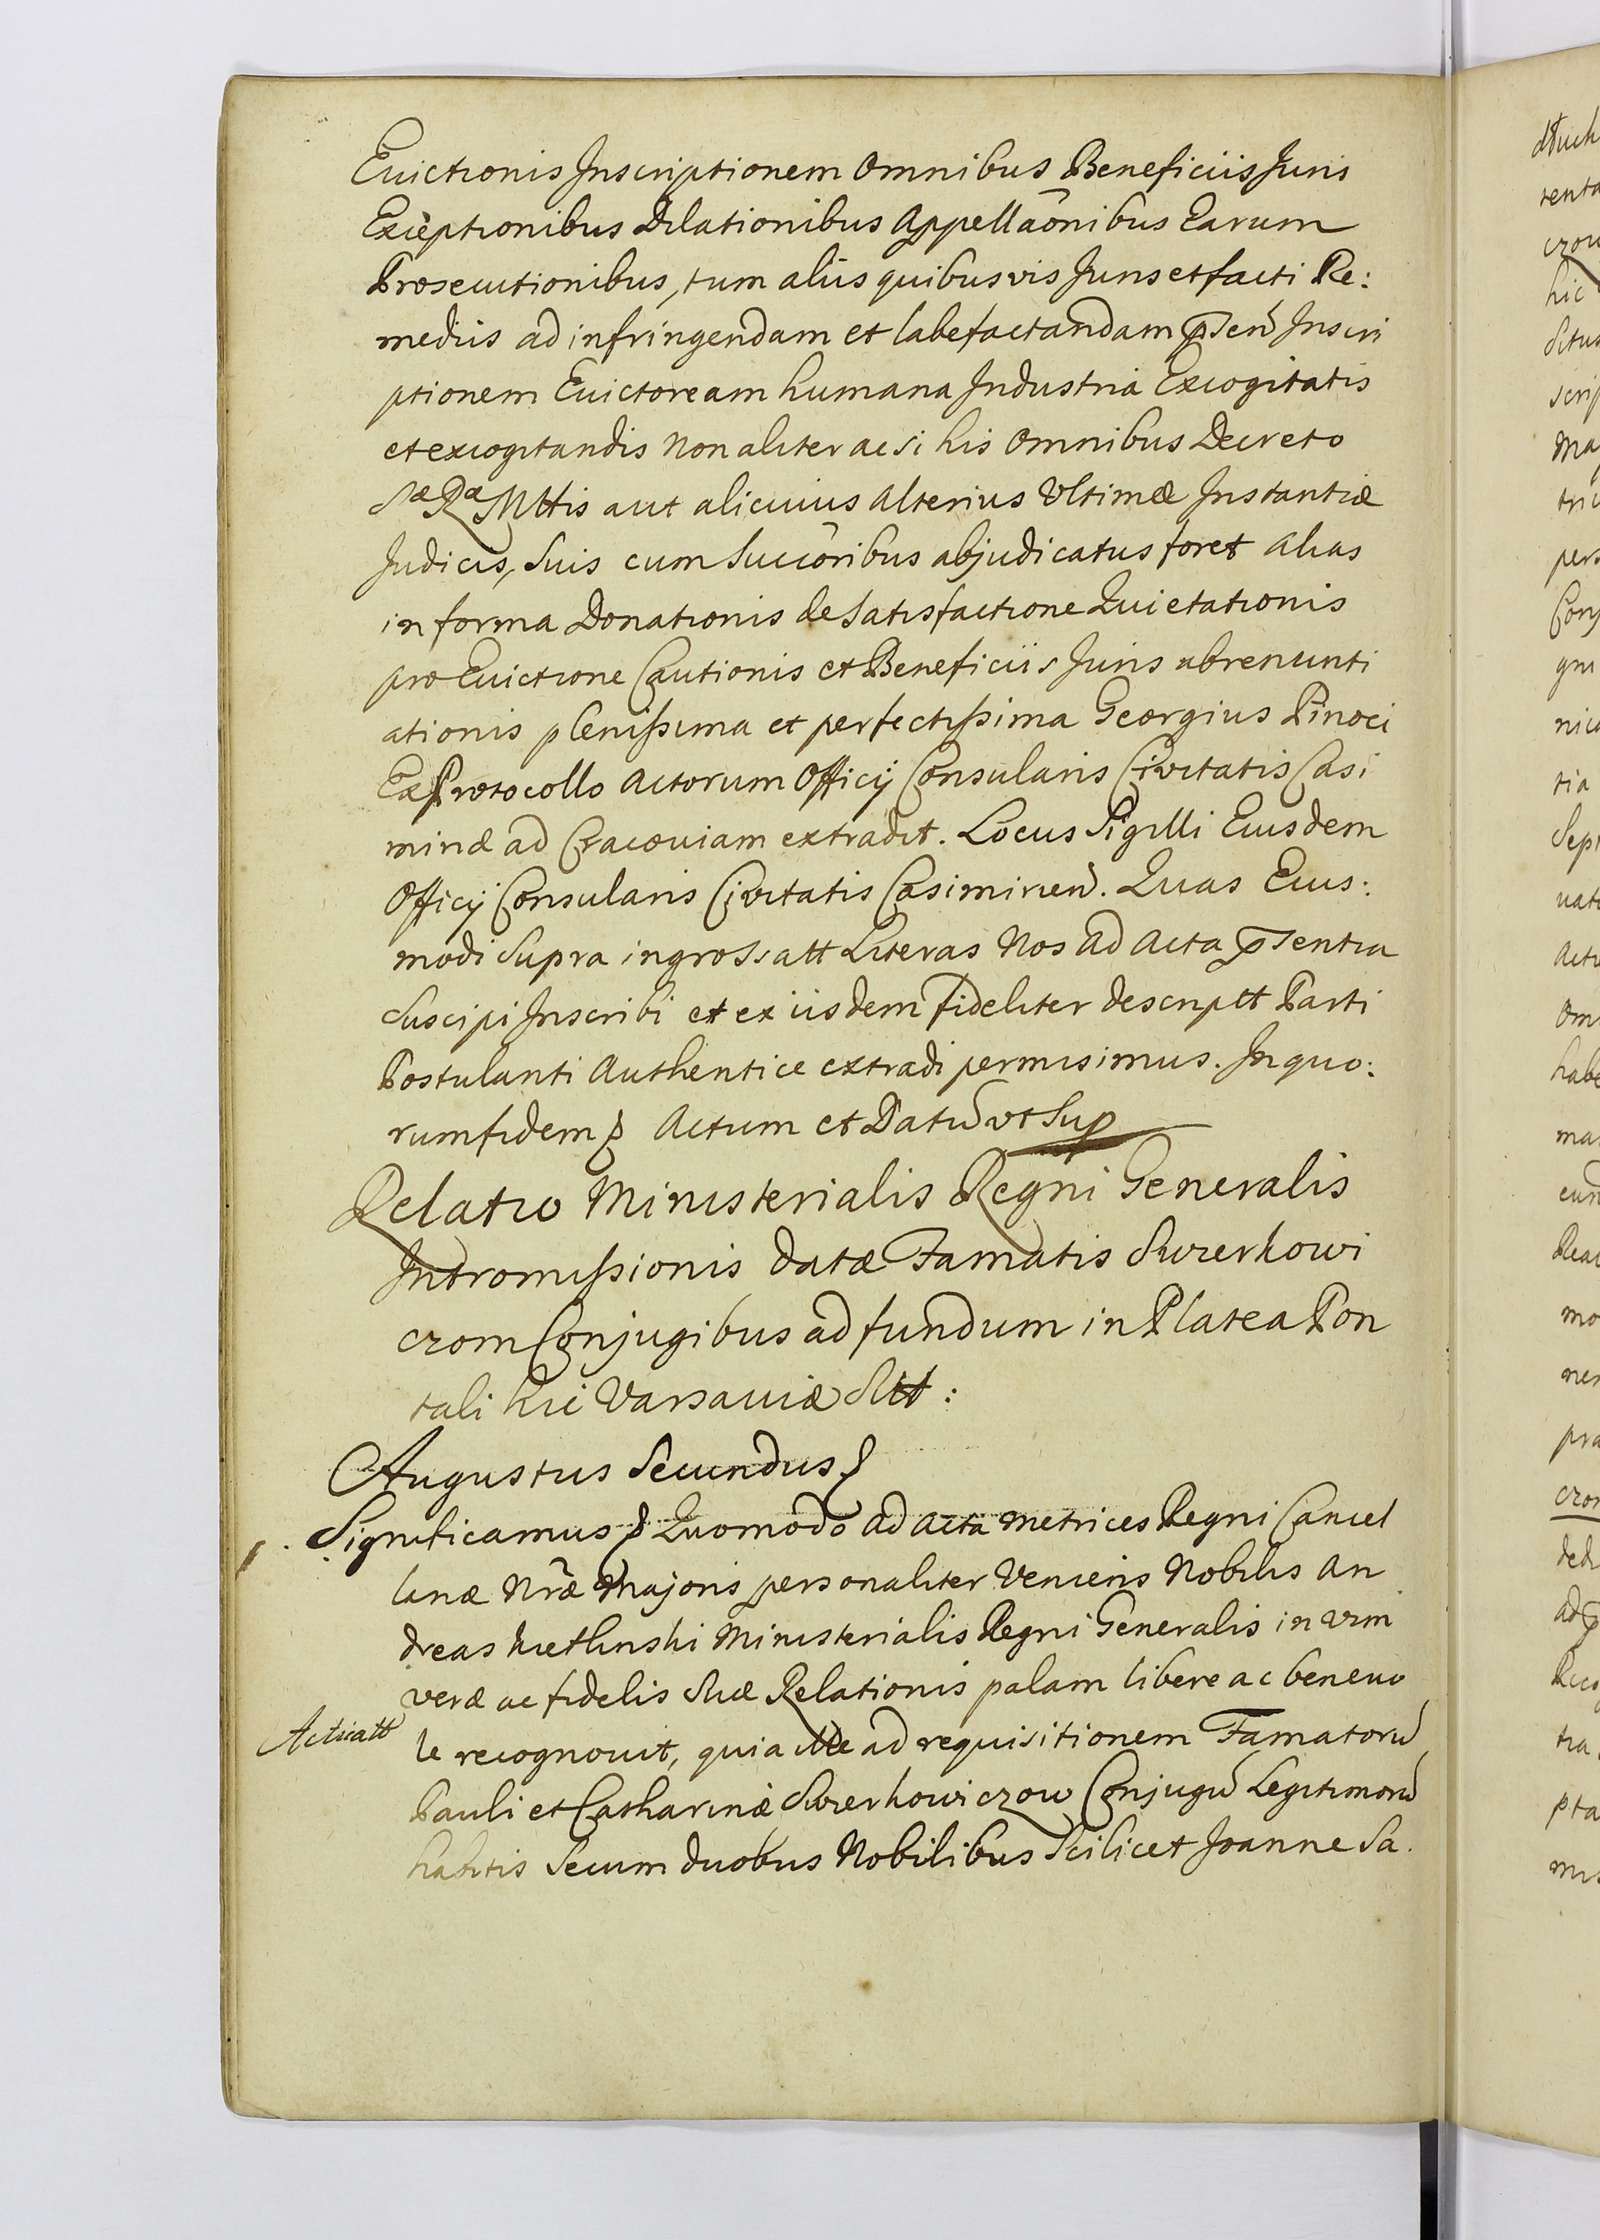 Evictionis Inscriptionem Omnibus Beneficiis Juris
Exceptionibus Dilationibus Appellãonibus Earum
Prosecutionibus, tum aliis quibusvis Juris et facti Re:
mediis ad infringendam et labefactandam p̄sen͂ Inscri
ptionem Evictoream humana Industria Excogitatis
et excogitandis non aliter ac si his Omnibus Decreto
Sæ Ræ Mttis aut alicuius Alterius Vltimæ Instantiæ
Judicis, Suis cum Succõribus abjudicatus foret Alias
in forma Donationis de Satisfactione Quietationis
pro Evictione Cautionis et Beneficiis Juris abrenunti
ationis plenissima et perfectissima Georgius Pinoci
Ex Protocollo Actorum Officij Consularis Civitatis Casi
miriæ ad Cracoviam extradit. Locus Sigilli Eiusdem
Officij Consularis Civitatis Casimirien͂. Quas Eius:
modi Supra ingrossatt Literas Nos ad Acta p̄sentia
Suscipi Inscribi et ex iisdem fideliter descriptt Parti
Postulanti Authentice extradi permisimus. In quo:
rum fidem Actum et Datu͂ vt Sup
Relatio Ministerialis Regni Generalis
Intromissionis datæ Famatis Swierkowi
czom Conjugibus ad fundum in Platea Pon
tali hic Varsaviæ Sitt:
Augustus Secundus
Significamus Quomodo ad Acta Metrices Regni Cancel
lariæ Nr̃æ Majoris personaliter Veniens Nobilis An
dreas Kietlinski Ministerialis Regni Generalis in vim
veræ ac fidelis Suæ Relationis palam libere ac benevo
Acticatt
le recognovit, quia Ille ad requisitionem Famatoru͂
Pauli et Catharinæ Swierkowiczow Conjugu͂ Legitimoru͂
habitis Secum duobus Nobilibus Scilicet Joanne Sa.